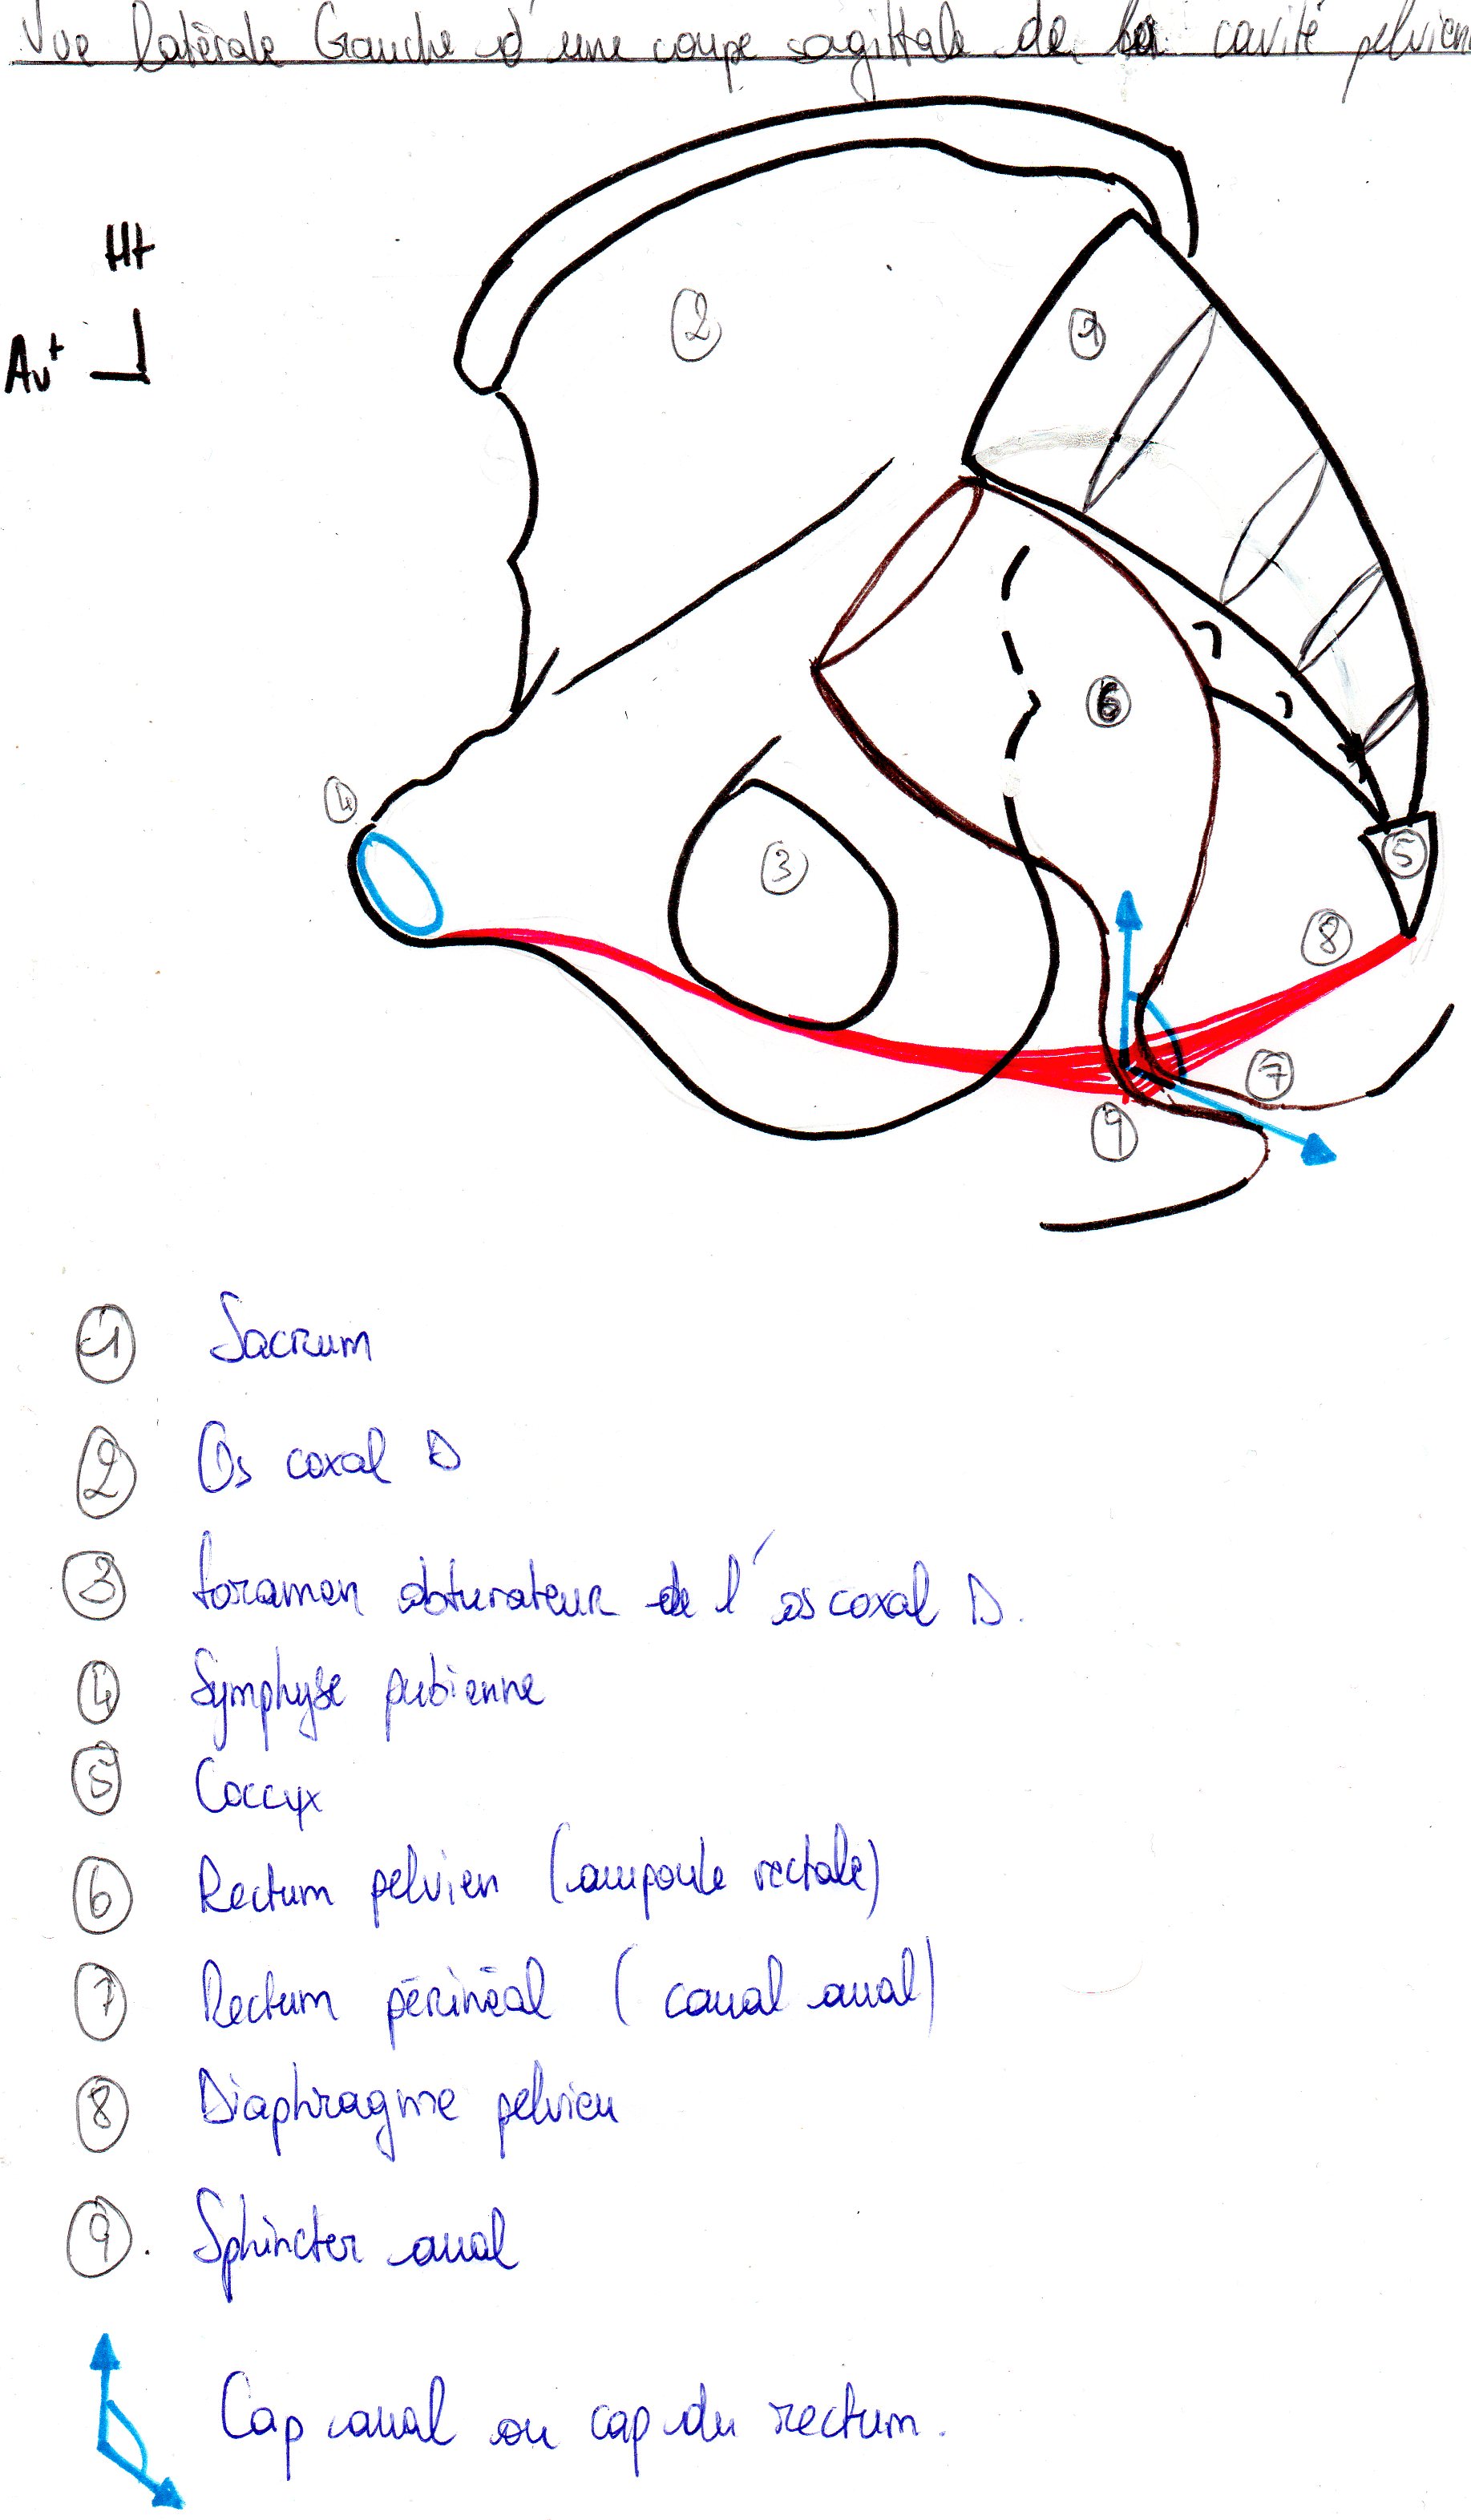 Vue latérale Gauche d'une coupe sagittale de la cavité pelvien
Ht
Av+
2
1
4
3
6
5
8
7
9
1 Sacrum
2 Os coxal D
3 foramen obturateur de l'os coxal D.
4 Symphyse pubienne
5 Coccyx
6 Rectum pelvien (ampoule rectale)
7 Rectum périnéal (canal anal)
8 Diaphragme pelvien
9. Sphincter anal
Cap canal ou cap du rectum.